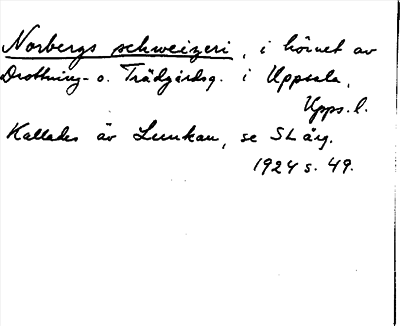 Norbergs schweizeri, i hörnet av
Drottning- o. Trädgårdsg. i Uppsala,
Upps. l.
Kallades äv Lunkan, se SLÅ
1924 s. 49.